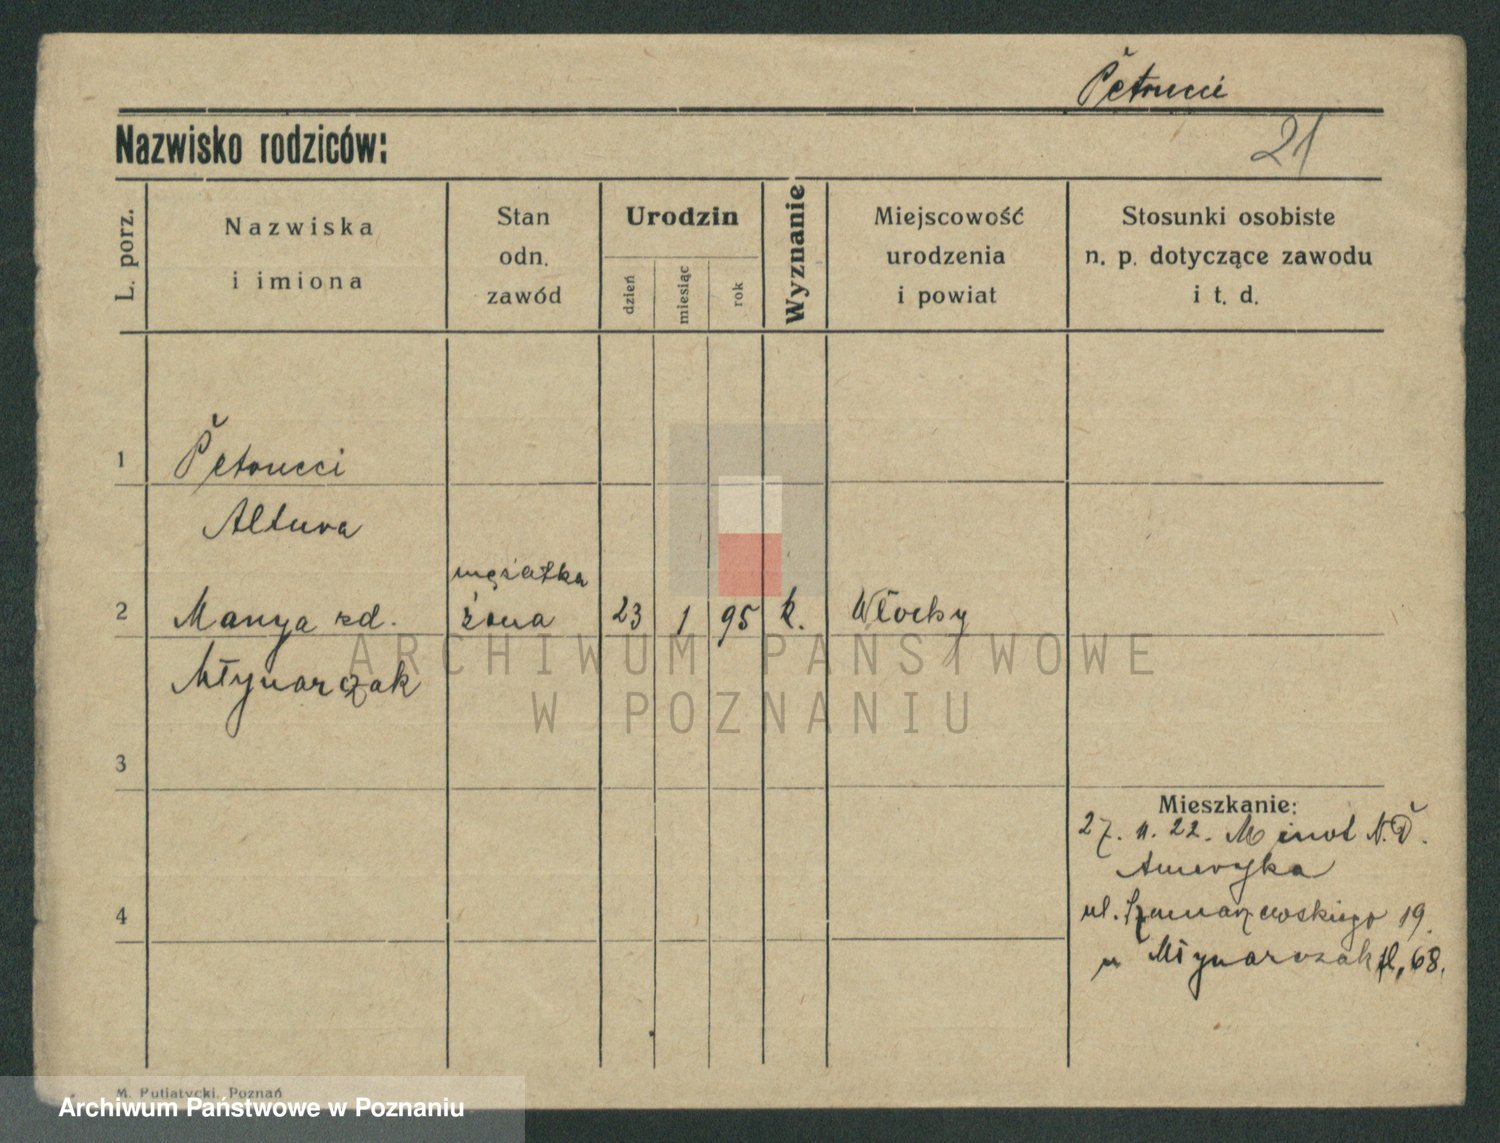 Petrucci
Nazwisko rodziców:
21
L. porz.
Nazwiska
i imiona
Stan
odn.
zawód
Urodzin
dzień
miesiąc
rok
Wyznanie
Miejscowość
urodzenia
i powiat
Stosunki osobiste
n. p. dotyczące zawodu
i t. d.
1
Petrucci
Altura
mężatka
2
Marya zd.
żona
23
1
95
k.
Włochy
Młynarczak
ARCHIWUM PAŃSTWOWE
W POZNANIU
3
Mieszkanie:
27. 11. 22. Minot N.D.
Ameryka
4
ul. Szamarzewskiego 19.
u Młynarczak fl, 68.
M. Putiatycki, Poznań
Archiwum Państwowe w Poznaniu